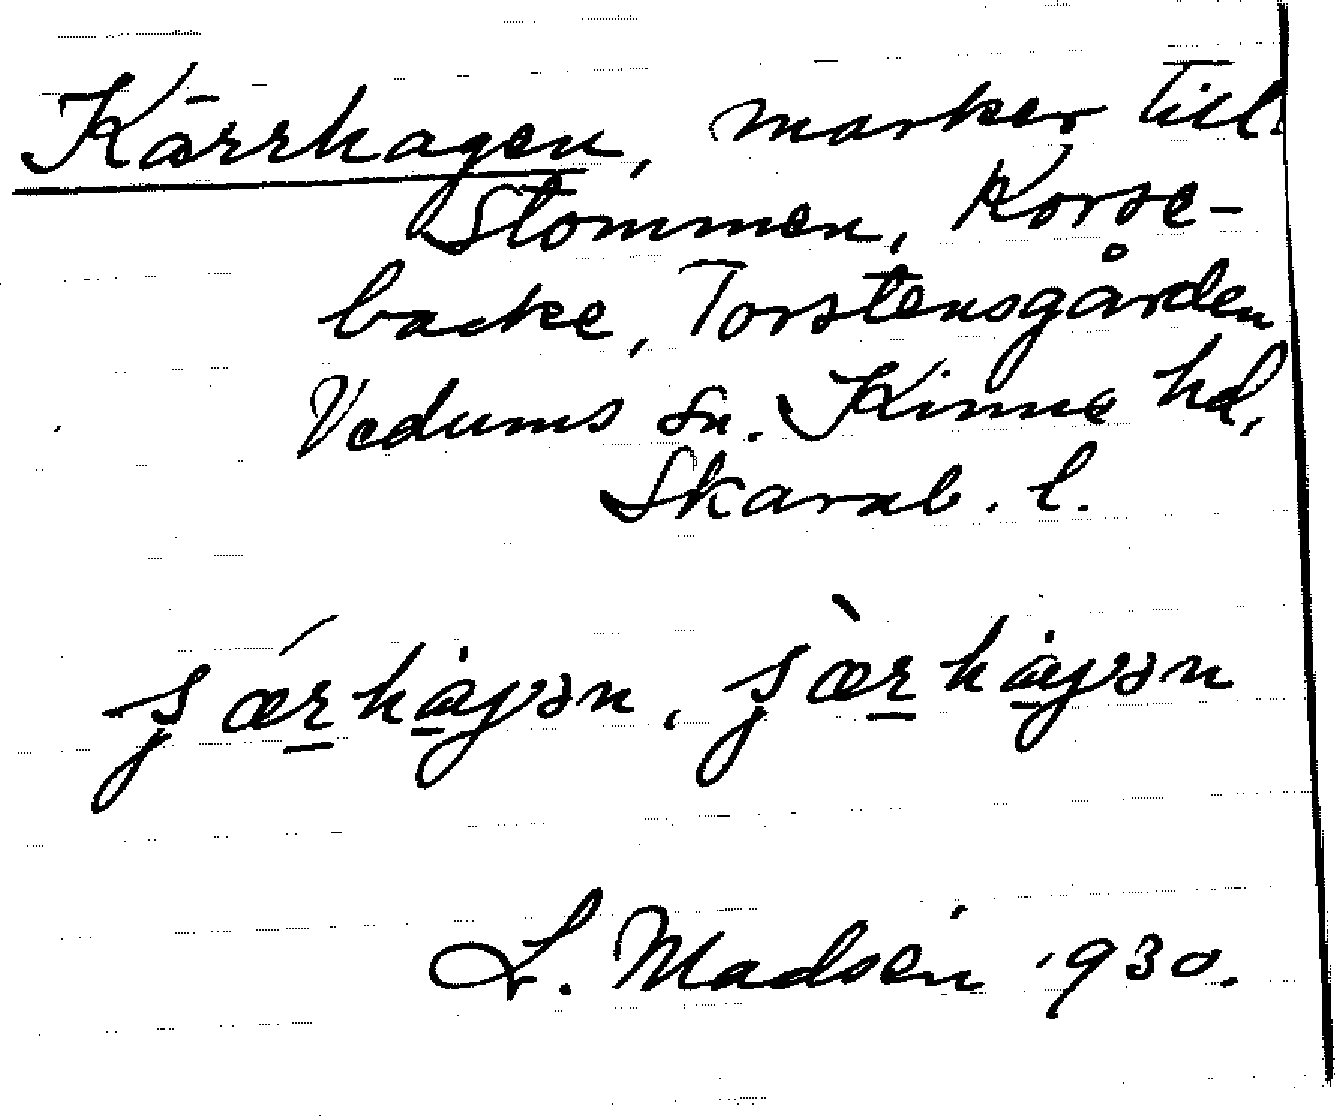 Kärrhagen, marker till
Stommen, Korse-
backe, Torstensgården
Vedums sn. Kinne hd,
Skarab. l.
L. Madsén 1930.